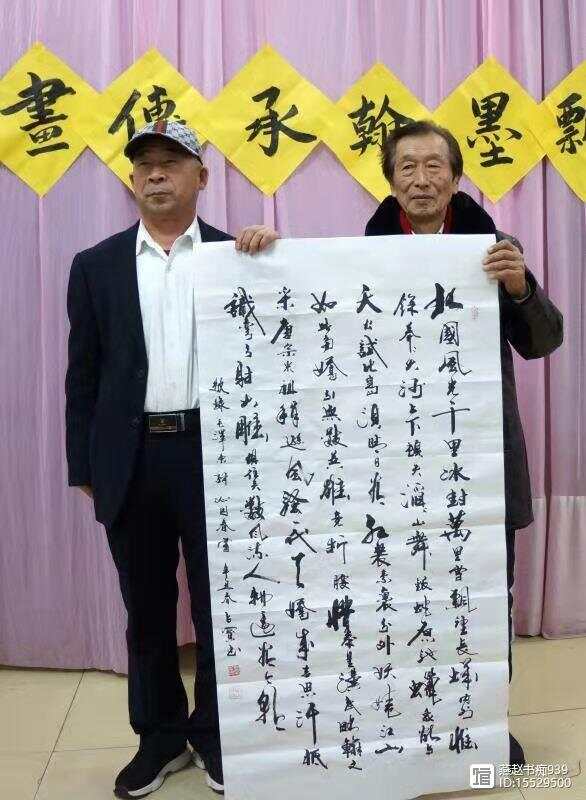 畫傳承翰墨
北國風光千里冰封萬里雪飄望長城內外惟
餘莽莽大河上下頓失滔滔山舞銀蛇原馳蠟象欲與
天公試比高須晴日看紅裝素裹分外妖嬈江山
如此多嬌引無數英雄競折腰惜秦皇漢武略輸文
采唐宗宋祖稍遜風騷一代天驕成吉思汗祇
識彎弓射大雕俱往矣數風流人物還看今朝
毛澤東詞沁園春雪辛丑春
燕赵书痴939
ID:15529500